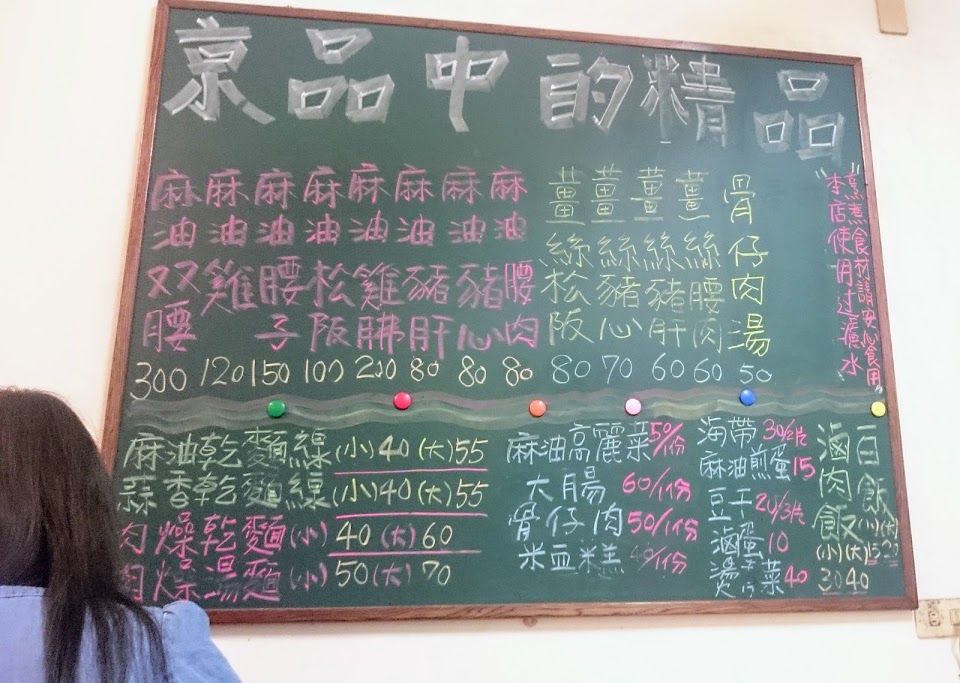 京品中的精品
麻油双腰 300
麻油雞 120
麻油腰子 150
麻油松阪 100
麻油雞胇 200
麻油豬肝 80
麻油豬心 80
麻油腰肉 80
薑絲松阪 80
薑絲豬心 70
薑絲豬肝 60
薑絲腰肉 60
骨仔肉湯 50
本店使用过濾水
烹煮食材請安心食用
麻油乾麵線(小)40(大)55
蒜香乾麵線(小)40(大)55
肉燥乾麵(小)40(大)60
肉燥湯麵(小)50(大)70
麻油高麗菜50/份
大腸 60/1份
骨仔肉50/1份
米血糕 40/份
海帶 30/2片
麻油煎蛋15
豆干 20/3片
滷蛋 10
燙青菜 40
滷肉飯(小)30(大)40
白飯(小)15(大)20